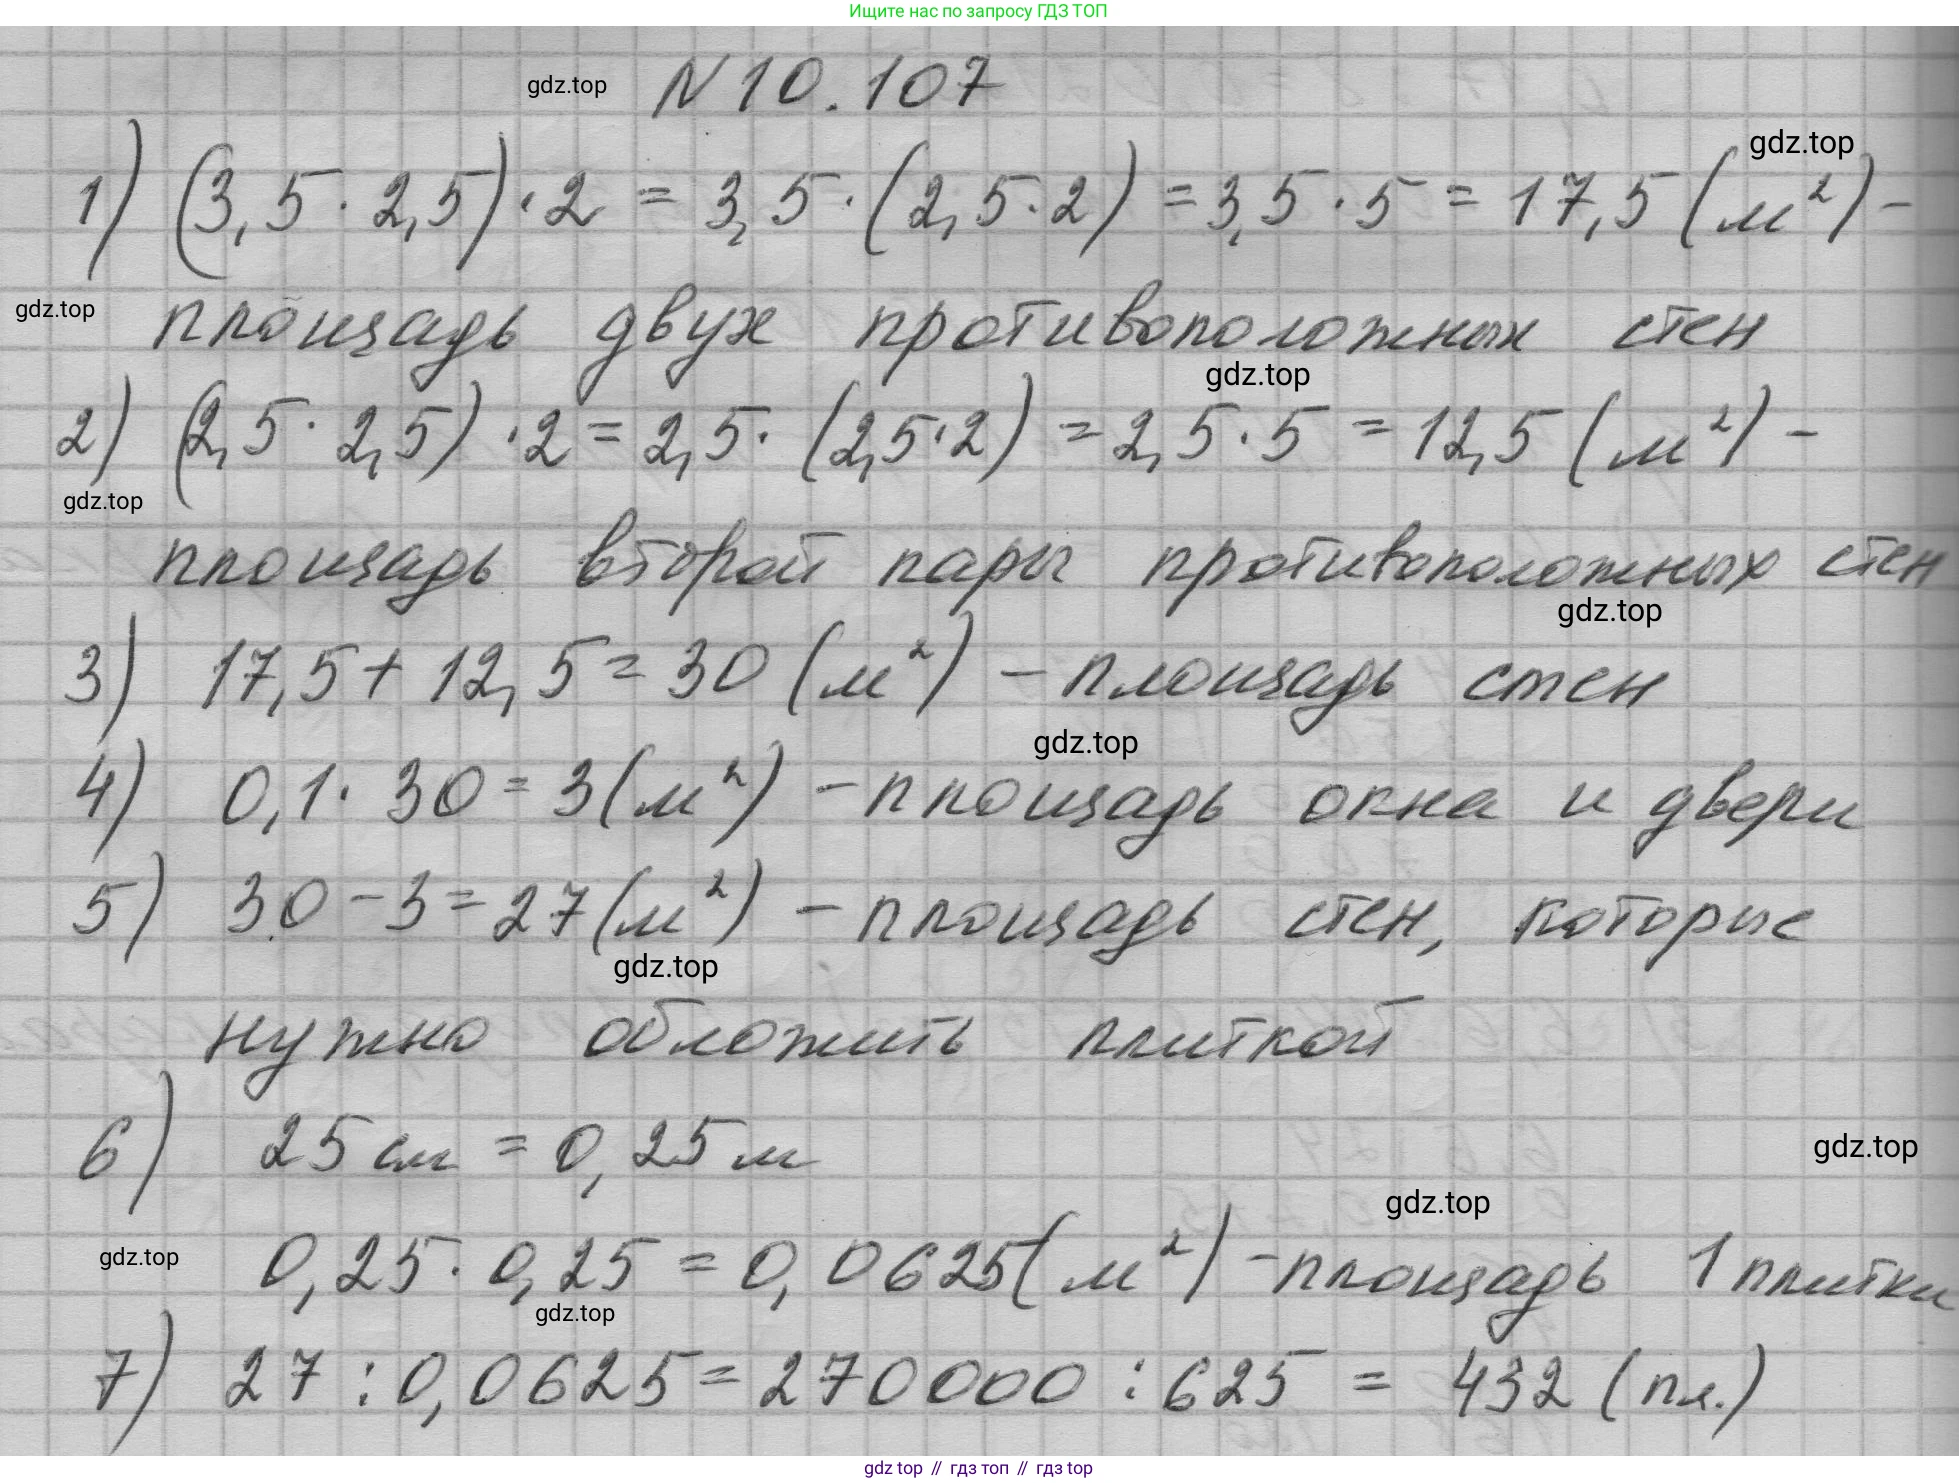 Ищите нас по запросу ГДЗ ТОП
gdz.top
N 10.107
gdz.top
1) (3,5 · 2,5) · 2 = 3,5 · (2,5 · 2) = 3,5 · 5 = 17,5 (м²) -
gdz.top
площадь двух противоположных стен
gdz.top
2) (2,5 · 2,5) · 2 = 2,5 · (2,5 · 2) = 2,5 · 5 = 12,5 (м²) -
gdz.top
площадь второй пары противоположных стен
gdz.top
3) 17,5 + 12,5 = 30 (м²) - площадь стен
gdz.top
4) 0,1 · 30 = 3 (м²) - площадь окна и двери
5) 30 - 3 = 27 (м²) - площадь стен, которые
gdz.top
нужно обложить плиткой
6) 25 см = 0,25 м
gdz.top
gdz.top
gdz.top
0,25 · 0,25 = 0,0625 (м²) - площадь 1 плитки
gdz.top
7) 27 : 0,0625 = 270000 : 625 = 432 (пл.)
gdz top // гдз топ // гдз top